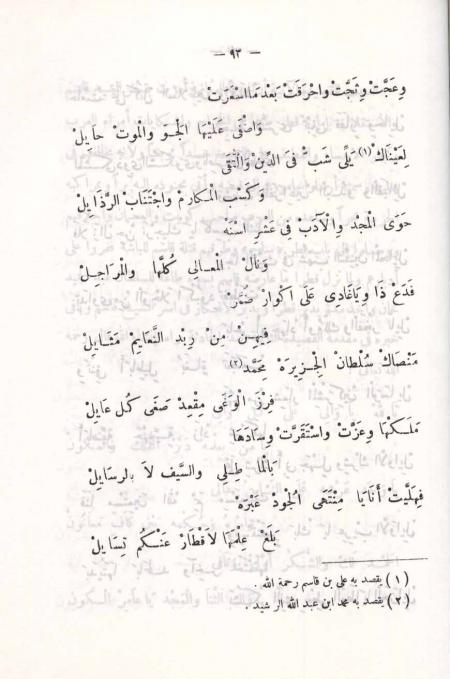 — ٩٣ —
وعَجَّتْ وثَجَّتْ واحْرَقَتْ بَعْدَ مَا اسْعَرَتْ
وَاصْفَى عَلَيْهَا الْجَوّ والْمَوتْ حَايِلْ
لِعَيْنَاكْ (١) يَلِّى شَبّ فىَ الدِّينْ وَالتَّقَى
وَكَسْبْ الْمَكَارِمْ واجْتَنَابْ الرَّذَايِلْ
حَوَى الْمَجْدْ والْآدَبْ فىِ عَشْرِ اسْنَهْ
وَنَالْ الْمَعَالى كُلَّهَا والْمَرَاجِلْ
فَدَعْ ذَا ويَاغَادِى عَلَى اكْوَارْ ضُمَّرْ
فِيهِنْ مِنْ رِبْدْ النَّعَايِمْ مَثَايِلْ
مَنْصَاكْ سُلْطَانْ الْجِزِيرَهْ مِحَمَّدْ (٢)
فِرْزْ الْوَغَى مِقْعِدْ صَغَى كُلْ عَايِلْ
مَلَكْهَا وعَزَّتْ واسْتَقَرَّتْ وسَادَهَا
بَالْمَا طِلِى والسَّيف لاَ بالرسَايِلْ
فِهلَيتْ أَنَايَا مِنْتَهَى الْجُودْ عَبْرَهْ
بَلَغْ عِلْمَهَا لاَقْطَارْ عَنْكُم تِسَايِلْ
(١) يقصد به على بن قاسم رحمة الله .
(٢) يقصد به محمد ابن عبد الله الرشيد .